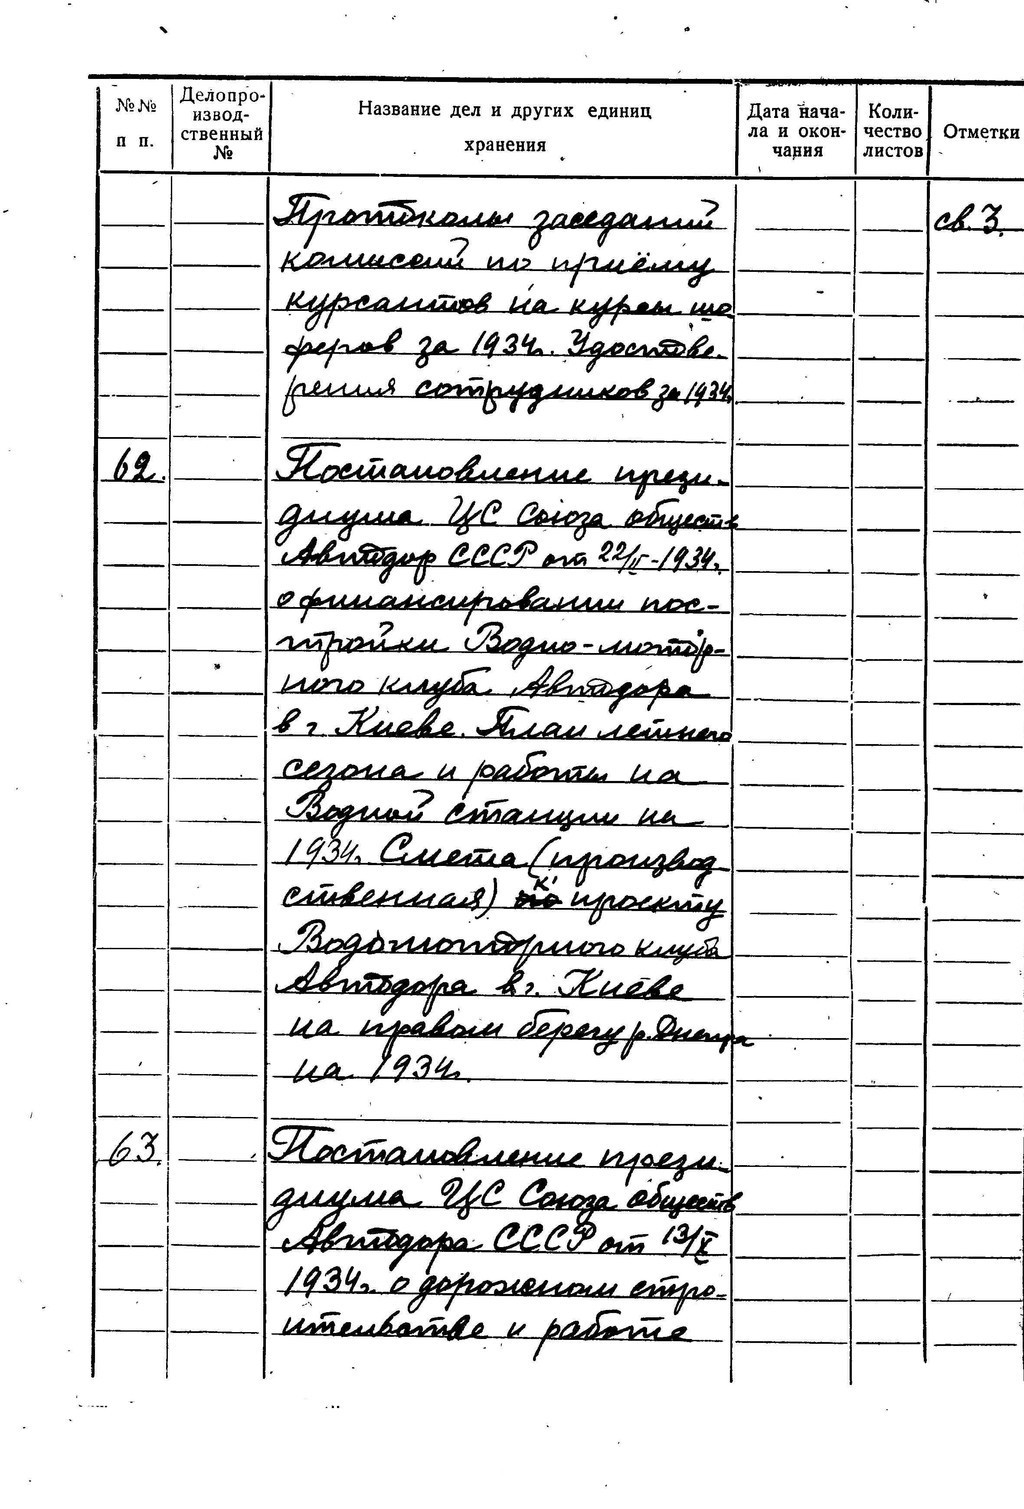 №№ п п.
Делопроизводственный №
Название дел и других единиц хранения
Дата начала и окончания
Количество листов
Отметки
Протоколы заседаний св. 3.
комиссий по приёму
курсантов на курсы шо
феров за 1934г. Удостове-
рения сотрудников за 1934г.
62. Постановление прези-
диума ЦС Союза обществ
Автодор СССР от 22/II-1934г.
о финансировании пос-
тройки Водно-мотор-
ного клуба Автодора
в г. Киеве. План летнего
сезона и работы на
Водной станции на
1934г. Смета (производ
ственная) к проекту
Водомоторного клуба
Автодора в г. Киеве
на правом берегу р. Днепра
на 1934г.
63. Постановление прези-
диума ЦС Союза обществ
Автодора СССР от 13/X
1934г. о дорожном стро-
ительстве и работе